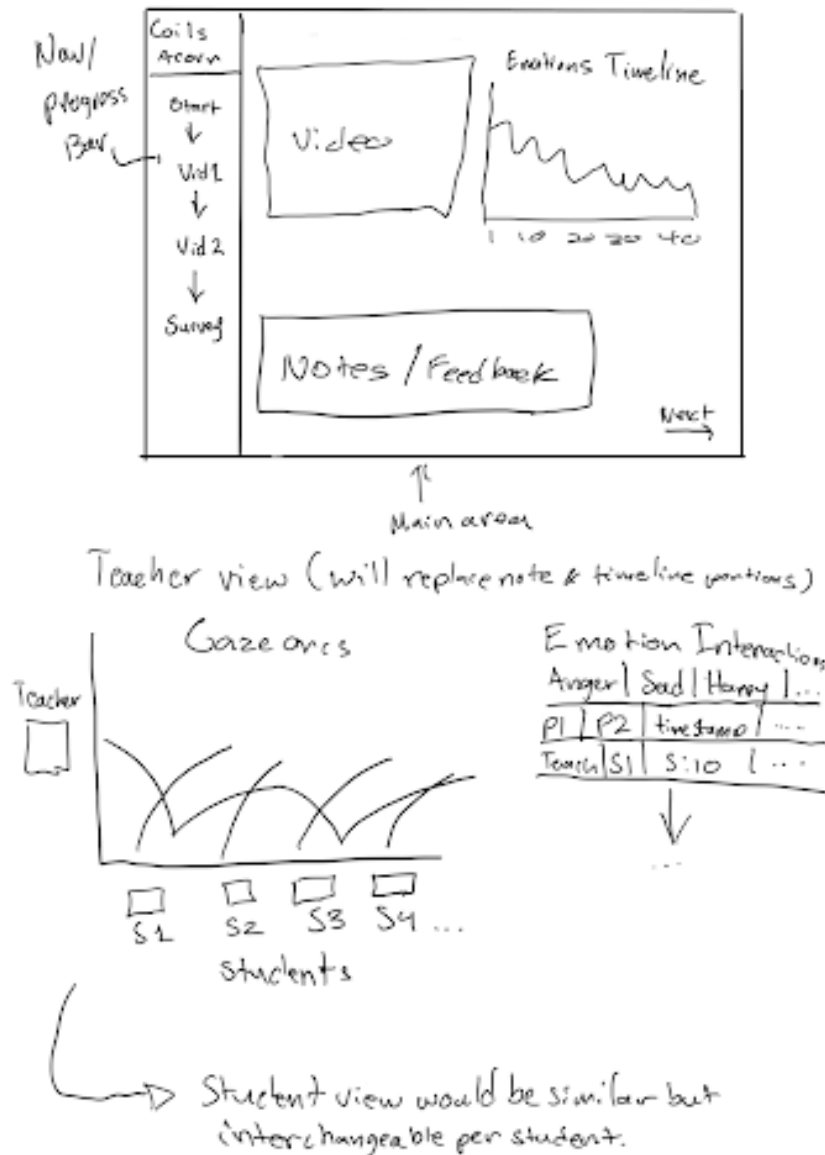 Coils
Acorn
Nav/
progress
Bar
Start
Vid1
Vid2
Survey
Video
Emotions Timeline
1 10 20 30 40
Notes / Feedback
Next
Main area
Teacher view (will replace note & timeline portions)
Gaze arcs
Teacher
S1 S2 S3 S4 ...
students
Emotion Interactions
Anger | Sad | Happy | ...
P1 | P2 | timestamp | ...
Teach | S1 | 5:10 | ...
...
Student view would be similar but
interchangeable per student.